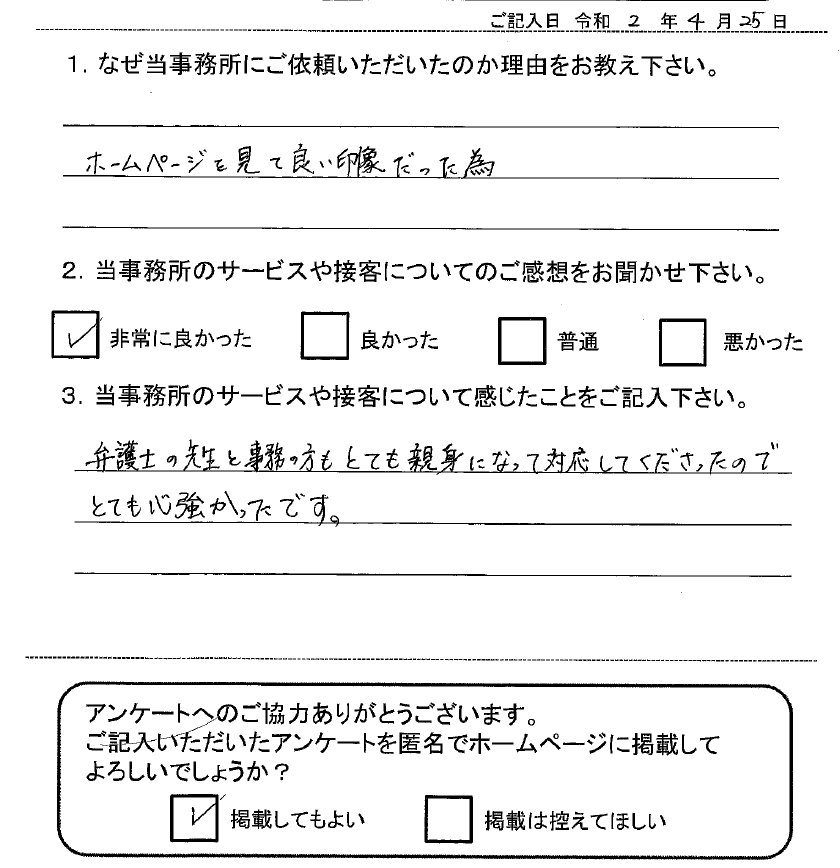 ご記入日 令和 2 年 4 月 25 日
1. なぜ当事務所にご依頼いただいたのか理由をお教え下さい。
ホームページを見て良い印象だった為
2. 当事務所のサービスや接客についてのご感想をお聞かせ下さい。
非常に良かった 良かった 普通 悪かった
3. 当事務所のサービスや接客について感じたことをご記入下さい。
弁護士の先生と事務の方もとても親身になって対応してくださったので
とても心強かったです。
アンケートへのご協力ありがとうございます。
ご記入いただいたアンケートを匿名でホームページに掲載して
よろしいでしょうか？
掲載してもよい 掲載は控えてほしい